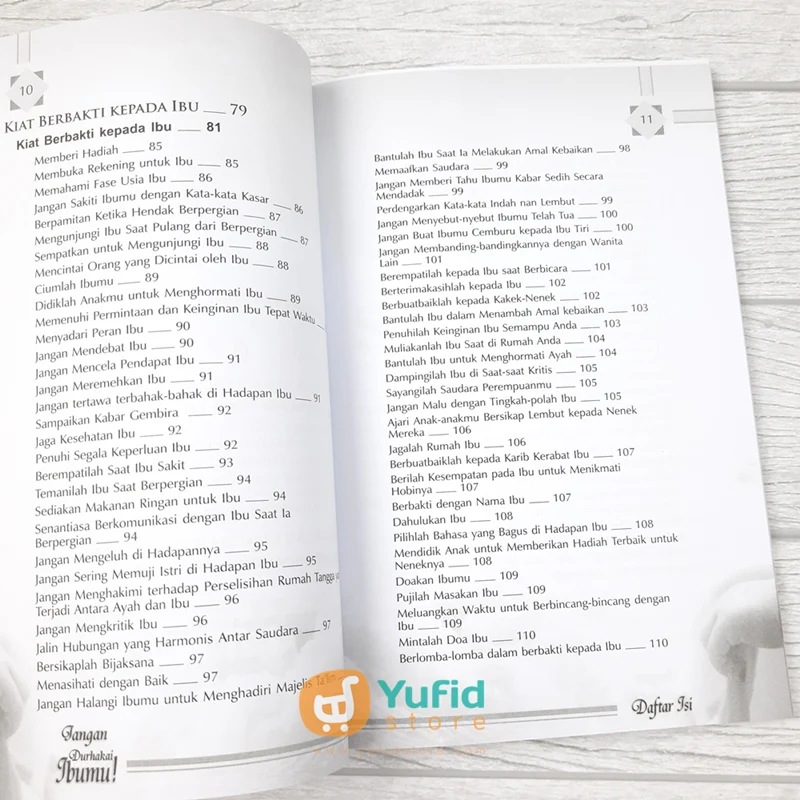 10
KIAT BERBAKTI KEPADA IBU ___ 79
Kiat Berbakti kepada Ibu ___ 81
Memberi Hadiah ___ 85
Membuka Rekening untuk Ibu ___ 85
Memahami Fase Usia Ibu ___ 86
Jangan Sakiti Ibumu dengan Kata-kata Kasar ___ 86
Berpamitan Ketika Hendak Berpergian ___ 87
Mengunjungi Ibu Saat Pulang dari Berpergian ___ 87
Sempatkan untuk Mengunjungi Ibu ___ 88
Mencintai Orang yang Dicintai oleh Ibu ___ 88
Ciumlah Ibumu ___ 89
Didiklah Anakmu untuk Menghormati Ibu ___ 89
Memenuhi Permintaan dan Keinginan Ibu Tepat Waktu ___
Menyadari Peran Ibu ___ 90
Jangan Mendebat Ibu ___ 90
Jangan Mencela Pendapat Ibu ___ 91
Jangan Meremehkan Ibu ___ 91
Jangan tertawa terbahak-bahak di Hadapan Ibu ___ 91
Sampaikan Kabar Gembira ___ 92
Jaga Kesehatan Ibu ___ 92
Penuhi Segala Keperluan Ibu ___ 92
Berempatilah Saat Ibu Sakit ___ 93
Temanilah Ibu Saat Berpergian ___ 94
Sediakan Makanan Ringan untuk Ibu ___ 94
Senantiasa Berkomunikasi dengan Ibu Saat Ia
Berpergian ___ 94
Jangan Mengeluh di Hadapannya ___ 95
Jangan Sering Memuji Istri di Hadapan Ibu ___ 95
Jangan Menghakimi terhadap Perselisihan Rumah Tangga
Terjadi Antara Ayah dan Ibu ___ 96
Jangan Mengkritik Ibu ___ 96
Jalin Hubungan yang Harmonis Antar Saudara ___ 97
Bersikaplah Bijaksana ___ 97
Menasihati dengan Baik ___ 97
Jangan Halangi Ibumu untuk Menghadiri Majelis
Jangan
Durhakai
Ibumu!
11
Bantulah Ibu Saat Ia Melakukan Amal Kebaikan ___ 98
Memaafkan Saudara ___ 99
Jangan Memberi Tahu Ibumu Kabar Sedih Secara
Mendadak ___ 99
Perdengarkan Kata-kata Indah nan Lembut ___ 99
Jangan Menyebut-nyebut Ibumu Telah Tua ___ 100
Jangan Buat Ibumu Cemburu kepada Ibu Tiri ___ 100
Jangan Membanding-bandingkannya dengan Wanita
Lain ___ 101
Berempatilah kepada Ibu saat Berbicara ___ 101
Berterimakasihlah kepada Ibu ___ 102
Berbuatbaiklah kepada Kakek-Nenek ___ 102
Bantulah Ibu dalam Menambah Amal kebaikan ___ 103
Penuhilah Keinginan Ibu Semampu Anda ___ 103
Muliakanlah Ibu Saat di Rumah Anda ___ 104
Bantulah Ibu untuk Menghormati Ayah ___ 104
Dampingilah Ibu di Saat-saat Kritis ___ 105
Sayangilah Saudara Perempuanmu ___ 105
Jangan Malu dengan Tingkah-polah Ibu ___ 105
Ajari Anak-anakmu Bersikap Lembut kepada Nenek
Mereka ___ 106
Jagalah Rumah Ibu ___ 106
Berbuatbaiklah kepada Karib Kerabat Ibu ___ 107
Berilah Kesempatan pada Ibu untuk Menikmati
Hobinya ___ 107
Berbakti dengan Nama Ibu ___ 107
Dahulukan Ibu ___ 108
Pilihlah Bahasa yang Bagus di Hadapan Ibu ___ 108
Mendidik Anak untuk Memberikan Hadiah Terbaik untuk
Neneknya ___ 108
Doakan Ibumu ___ 109
Pujilah Masakan Ibu ___ 109
Meluangkan Waktu untuk Berbincang-bincang dengan
Ibu ___ 109
Mintalah Doa Ibu ___ 110
Berlomba-lomba dalam berbakti kepada Ibu ___ 110
Daftar Isi
Yufid
store